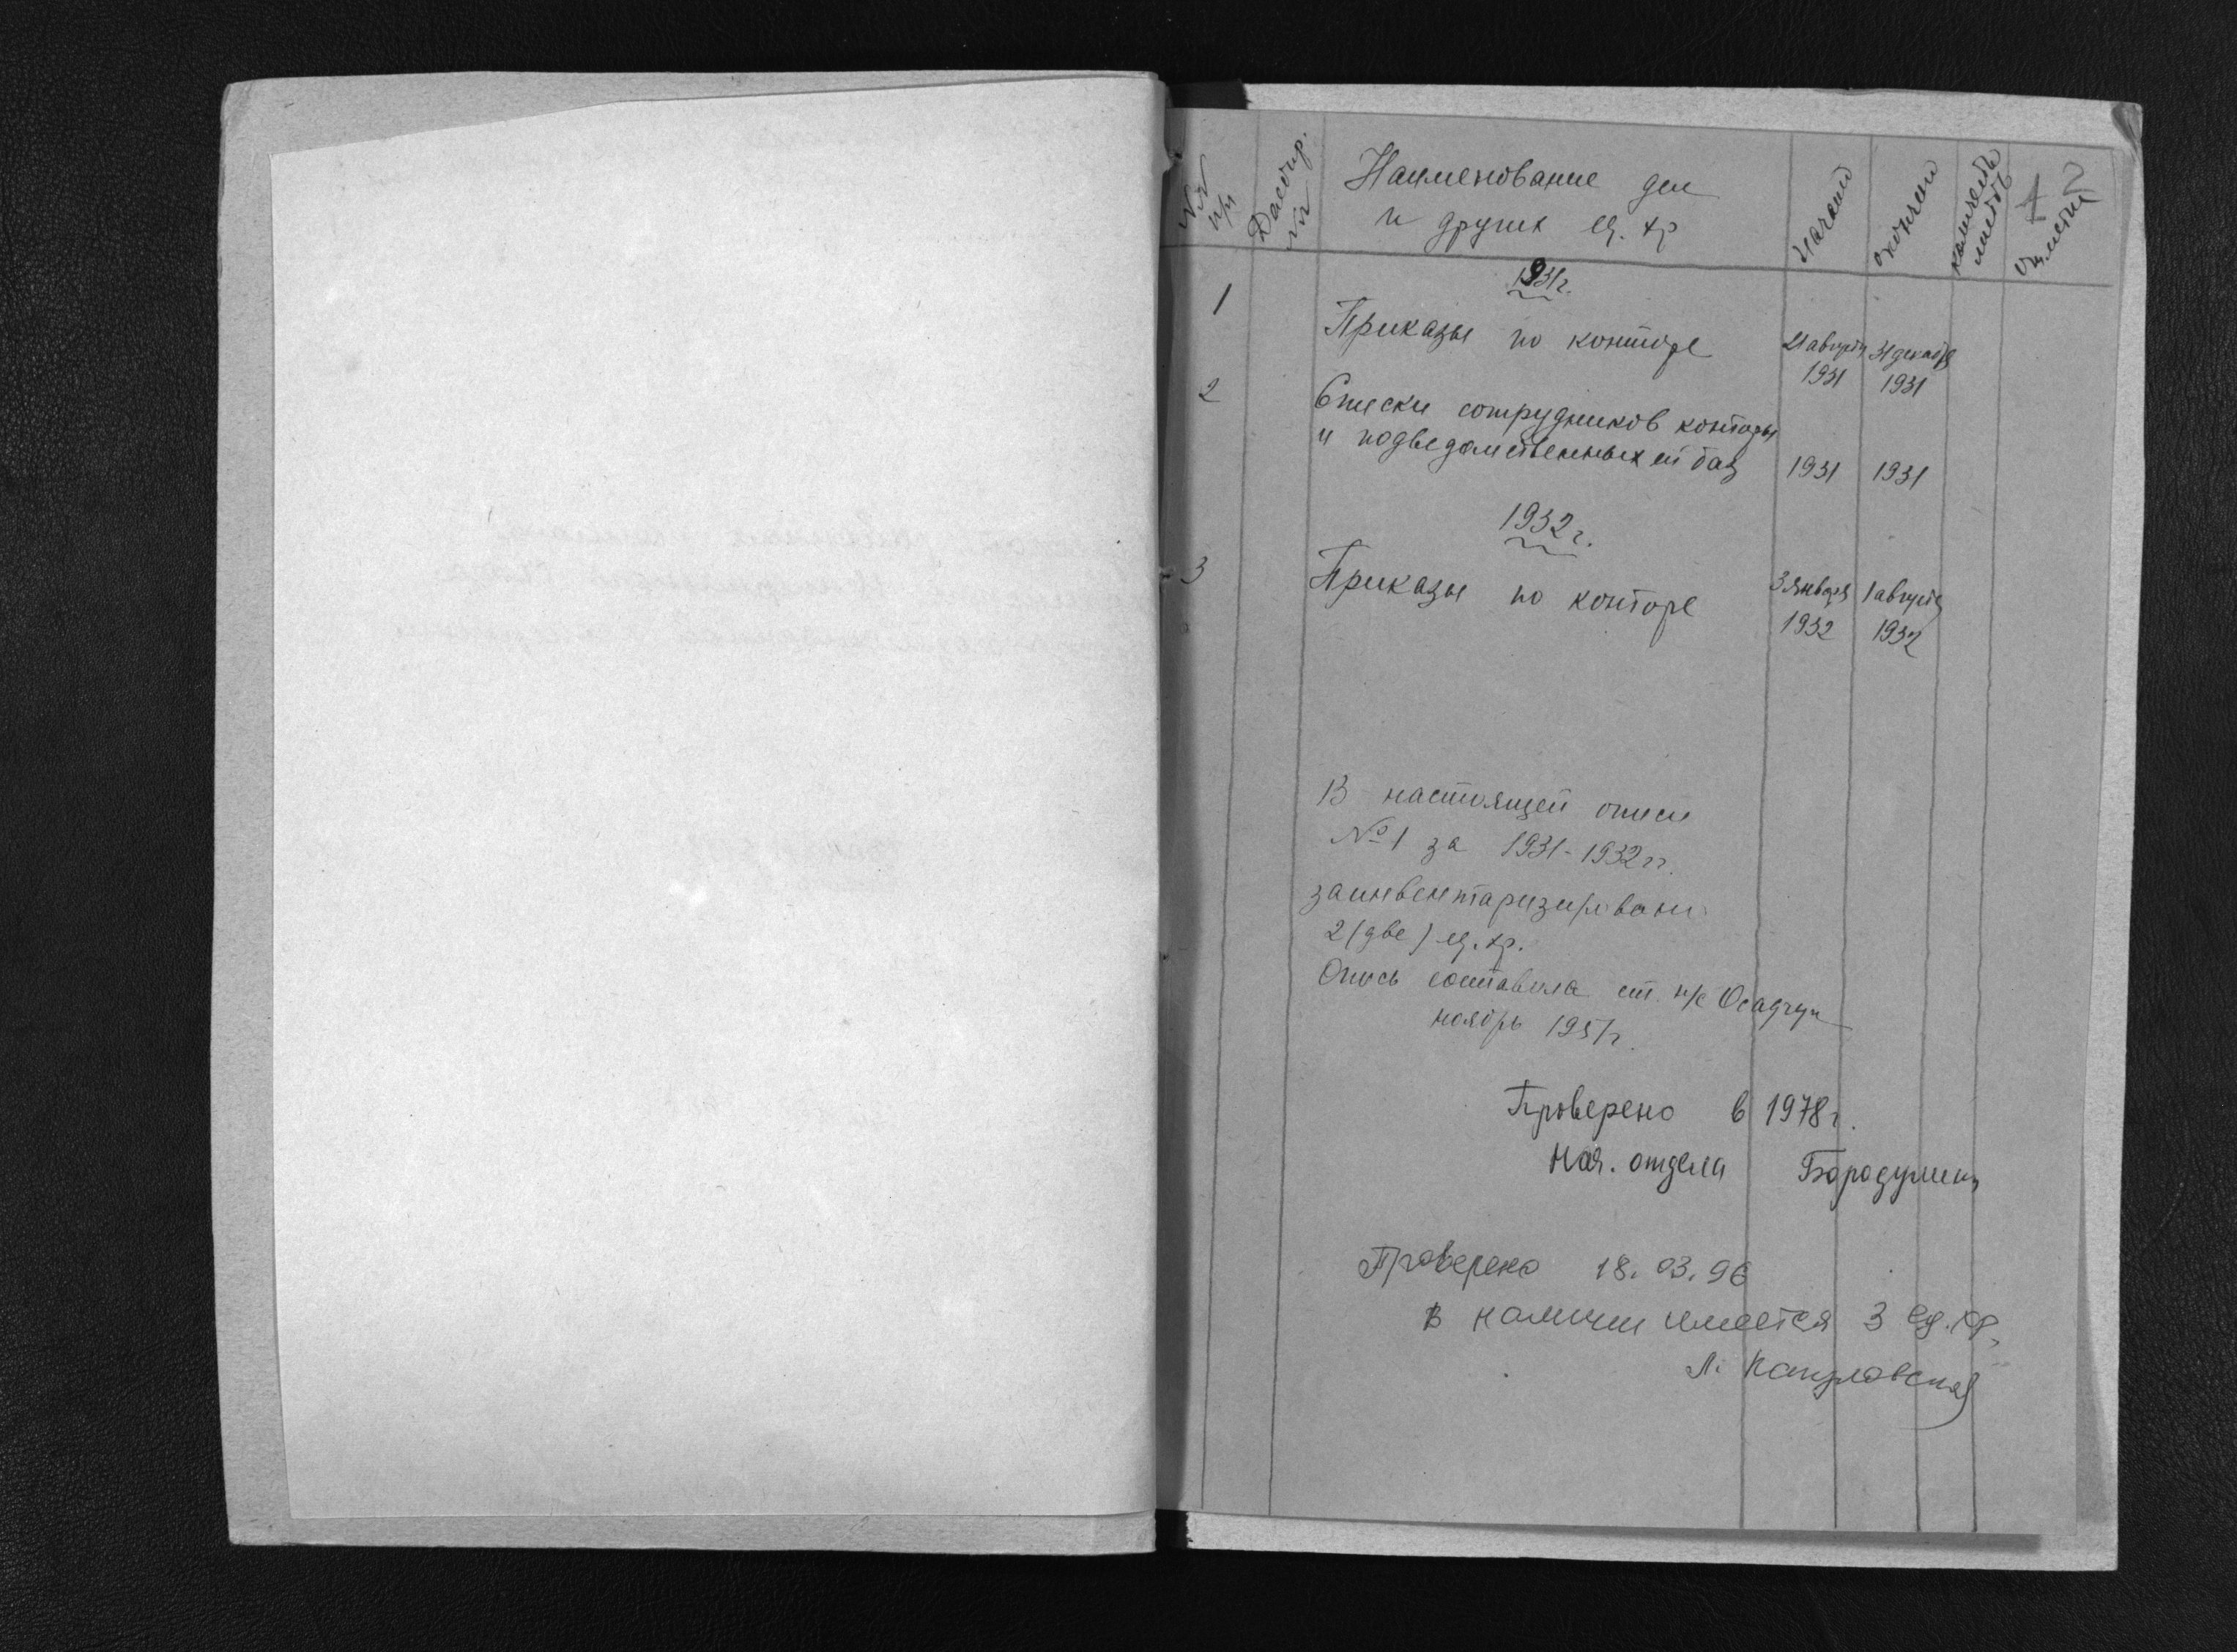 №№ п/п
Наименование дел
и других ед. хр
начало
окончан
количеств листов
1 2
1931г.
1
Приказы по конторе
21 августа 1931
31 декабря 1931
2
Списки сотрудников конторы
и подведомственных ей баз
1931
1931
1932г.
3
Приказы по конторе
3 января 1932
1 августа 1932
В настоящей описи
№1 за 1931-1932гг.
заинвентаризировано
2 (две) ед. хр.
Опись составила ст. н/с Осадчук
ноябрь 1951г.
Проверено в 1978г.
Нач. отдела
Проверено 18.03.96
в наличии имеется 3 ед. хр.
Л.